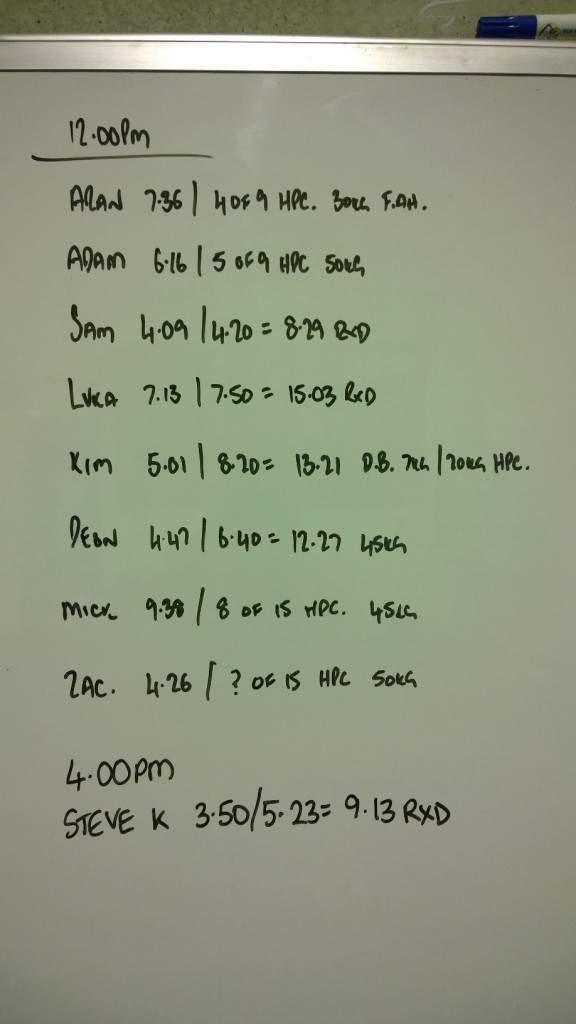 12.00PM
7.36 | 4 OF 9 HPC. 30KG F.AH.
ADAM 6.16 | 5 OF 9 HPC 50KG
SAM 4.09 | 4.20 = 8.29 RXD
LUKA 7.13 | 7.50 = 15.03 RXD
KIM 5.01 | 8.20 = 13.21 D.B. 7KG | 20KG HPC.
4.47 | 6.40 = 12.27 45KG
MICK 9.38 / 8 OF 15 HPC. 45KG
ZAC. 4.26 / ? OF 15 HPC 50KG
4.00PM
STEVE K 3.50/5.23= 9.13 RXD